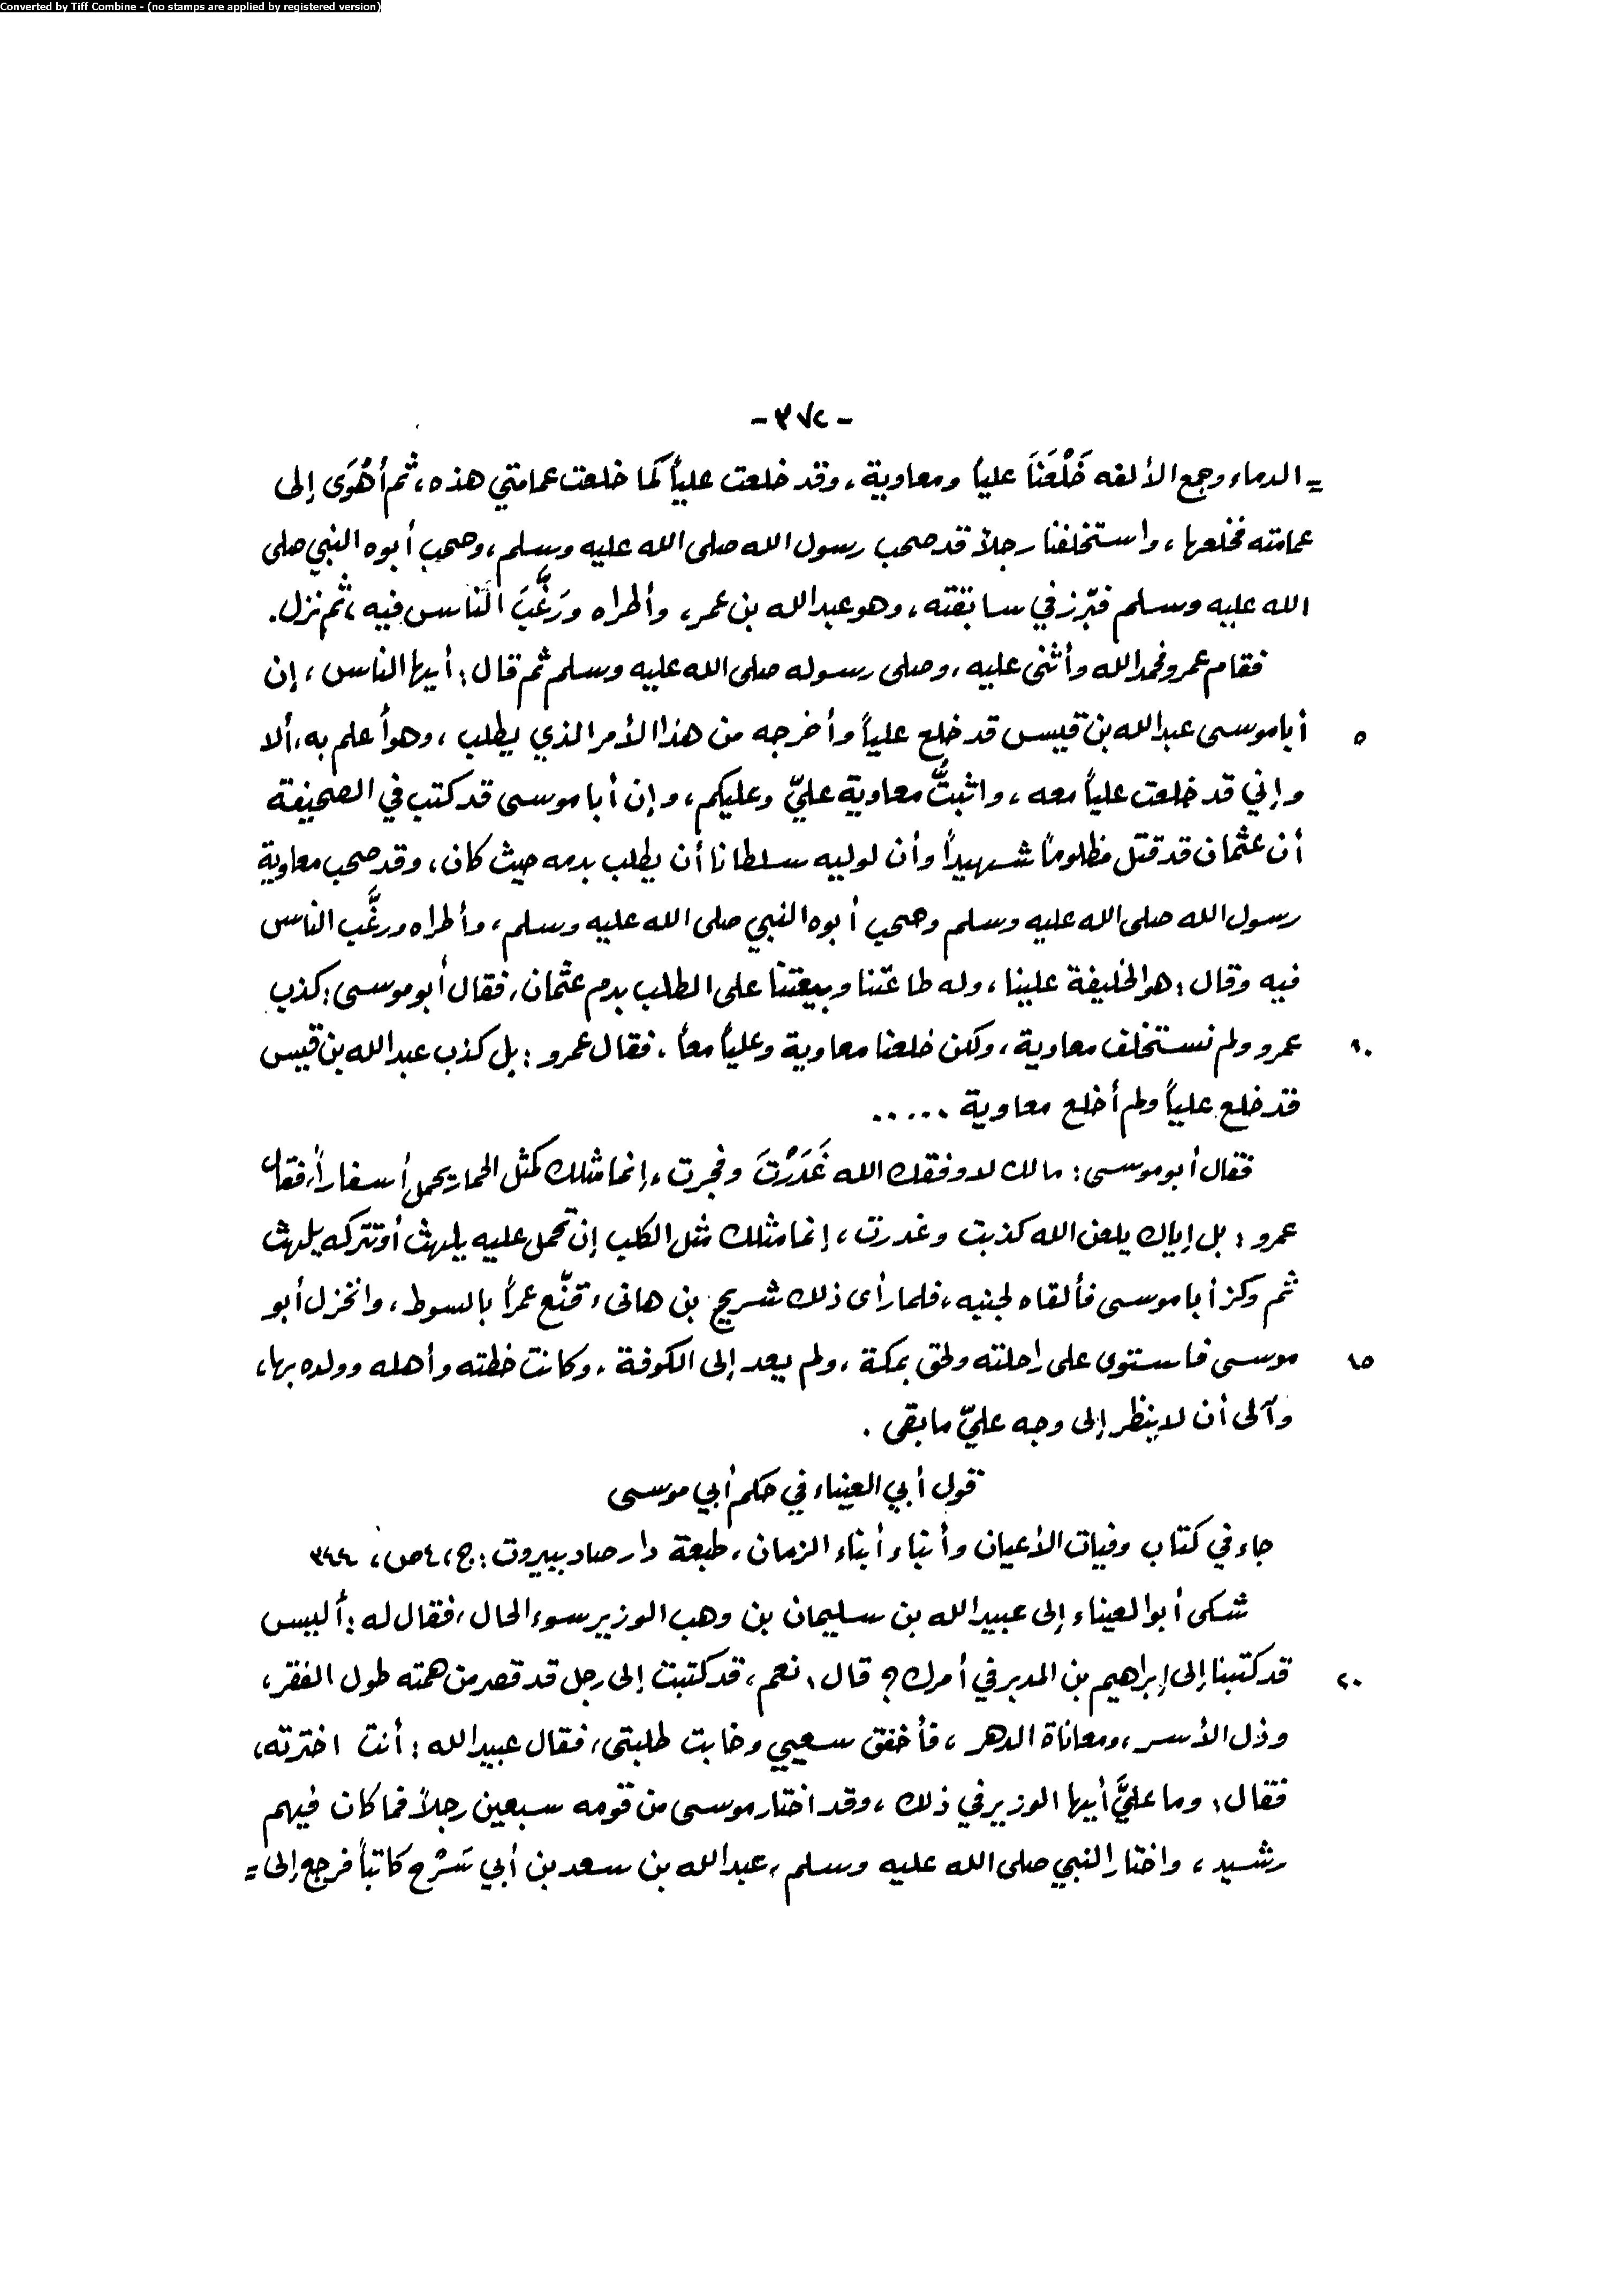 Converted by Tiff Combine - (no stamps are applied by registered version)
- ٣٧٢ -
= الدماء وجمع الألفه خَلْعَنَا علياً ومعاوية، وقد خلعت علياً كما خلعت عمامتي هذه، ثم أهْوَى إلى
عمامته فخلعها، واستخلفنا رجلاً قد صحب رسول الله صلى الله عليه وسلم، وصحب أبوه النبي صلى
الله عليه وسلم فبرّز في سابقته، وهو عبد الله بن عمر، وأطراه وَرَغَّبَ الناس فيه، ثم نزل.
فقام عمرو فحمد الله وأثنى عليه، وصلى رسوله صلى الله عليه وسلم ثم قال: أيها الناس، إن
أبا موسى عبد الله بن قيس قد خلع علياً وأخرجه من هذا الأمر الذي يطلب، وهو أعلم به، ألا ٥
وإني قد خلعت علياً معه، واثبتُّ معاوية عليّ وعليكم، وإن أبا موسى قد كتب في الصحيفة
أن عثمان قد قتل مظلوماً شهيداً وأن لوليه سلطانا أن يطلب بدمه حيث كان، وقد صحب معاوية
رسول الله صلى الله عليه وسلم وصحب أبوه النبي صلى الله عليه وسلم، وأطراه ورغَّب الناس
فيه وقال: هو الخليفة علينا، وله طاعتنا وبيعتنا على الطلب بدم عثمان، فقال أبو موسى: كذب
عمرو ولم نستخلف معاوية، ولكن خلعنا معاوية وعلياً معاً. فقال عمرو: بل كذب عبد الله بن قيس ١٠
قد خلع علياً ولم أخلع معاوية .....
فقال أبو موسى: مالك لا وفقك الله غَدَرْتَ وفجرت، إنما مثلك كمثل الحمار يحمل أسفاراً، فقال
عمرو: بل إياك يلعن الله كذبت وغدرت، إنما مثلك مثل الكلب إن تحمل عليه يلهث أو تتركه يلهث
ثم وكز أبا موسى فألقاه لجنبه، فلما رأى ذلك شريح بن هانىء قنّع عمراً بالسوط، وانخزل أبو
موسى فاستوى على راحلته ولحق بمكة، ولم يعد إلى الكوفة، وكانت خطته وأهله وولده بها، ١٥
وآلى أن لا ينظر إلى وجه عليّ ما بقي.
قول أبي العيناء في حكم أبي موسى
جاء في كتاب وفيات الأعيان وأنباء أبناء الزمان، طبعة دار صادر بيروت: ج، ٤ ص، ٣٤٤
شكى أبو العيناء إلى عبيد الله بن سليمان بن وهب الوزير سوء الحال، فقال له: أليس
قد كتبنا إلى إبراهيم بن المدبر في أمرك؟ قال: نعم، قد كتبت إلى رجل قد قصر من همته طول الفقر، ٢٠
وذل الأسر، ومعاناة الدهر، فأخفق سعيي وخابت طلبتي، فقال عبيد الله: أنت اخترته،
فقال: وما عليَّ أيها الوزير في ذلك، وقد اختار موسى من قومه سبعين رجلاً فما كان فيهم
رشيد، واختار النبي صلى الله عليه وسلم، عبد الله بن سعد بن أبي سَرْح كاتباً فرجع إلى =